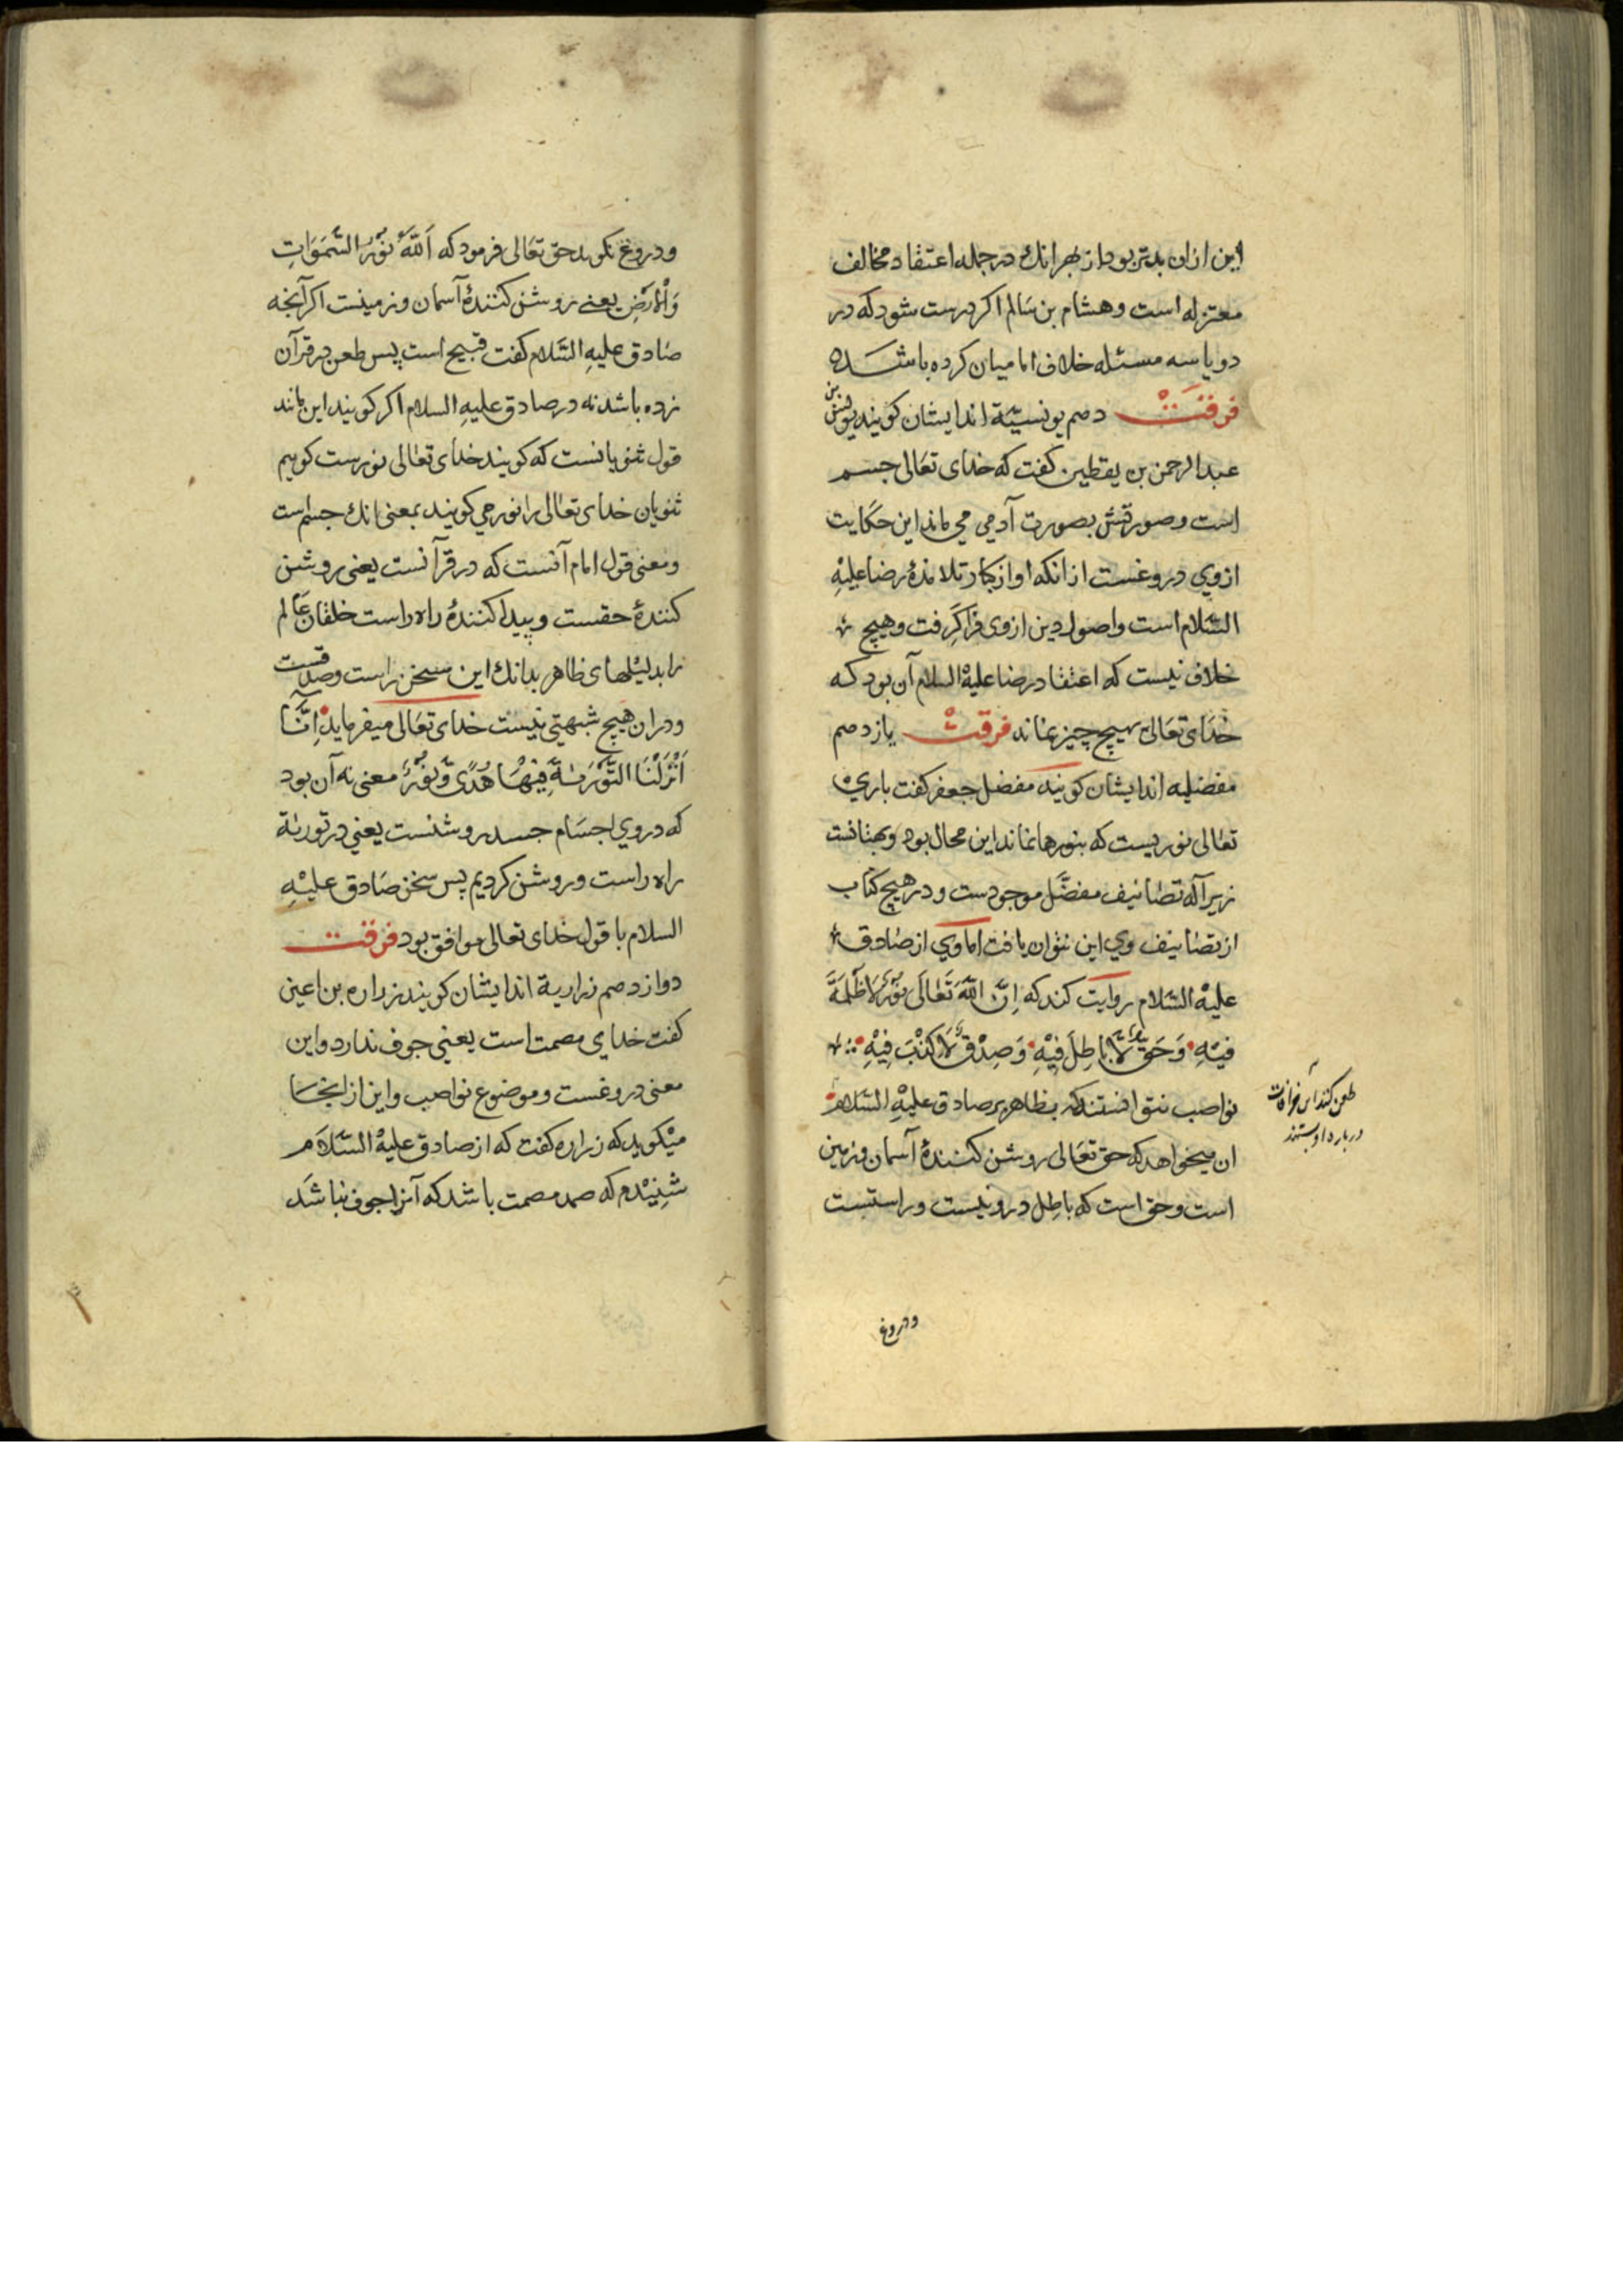 این ازان بدتر بود از بهر انك در جمله اعتقاد مخالف
معتزله است و هشام بن سالم اکر درست شود که در
دو یا سه مسئله خلاف امامیان کرده باشد
فرقت دهم یونسیّة اند ایشان کویند یونس بن
عبدالرحمن بن یقطین کفت که خدای تعالی جسم
است و صورتش بصورت آدمی می ماند این حکایت
از وی دروغست از انکه او از کبار تلامذهٔ رضا علیهِ
السّلام است و اصول دین از وی فرا کرفت و هیچ
خلاف نیست که اعتقاد رضا علیهْ السلام آن بود که
خدای تعالی بهیچ چیز نماند فرقت یازدهم
مفضلیه اند ایشان کویند مفضل جعفر کفت باری
تعالی نوریست که بنورها نماند این محال بود و بهتانست
زیرا که تصانیف مفضّل موجودست و در هیچ کتاب
از تصانیف وی این نتوان یافت اما وی از صادق
علیهْ السّلام روایت کند که اِنَّ اللّهَ تَعَالَی نُوْرٌ لَا ظُلْمَةَ
فِیْهِ وَحَقٌّ لَا بَاطِلَ فِیْهِ وَصِدْقٌ لَا کِذْبَ فِیْهِ
نواصب نتوانستند که بظاهر بر صادق علیهِ السّلام
طعن کنند این خرافات
در باره او بستند
ان میخواهد که حق تعالی روشن کنندهٔ آسمان و زمین
است و حق است که باطِل درو نیست و راستیست
ودروغ
ودروغ نکوید حق تعالی فرمود که اَللّهُ نُوْرُ السَّمٰوَاتِ
وَالْاَرْضِ یعنی روشن کنندهٔ آسمان و زمینست اکر آنچه
صادق علیهِ السَّلام کفت قبیح است پس طعن در قرآن
زده باشد نه در صادق علیهِ السلام اکر کویند این مانند
قول ثنویانست که کویند خدای تعالی نورست کویم
ثنویان خدای تعالی را نور می کویند بمعنی انك جسم است
و معنی قول امام آنست که در قرآنست یعنی روشن
کنندهٔ حقست و پیدا کنندهٔ راه راست خلقان عالم
را بدلیلهای ظاهر بدانك این سخن راست و صدقست
و دران هیچ شبهتی نیست خدای تعالی میفرماید اِنَّا
اَنْزَلْنَا التَّوْرٰیةَ فِیْهَا هُدًی وَّنُوْرٌ معنی نه آن بود
که در وی اجسام جسد روشنست یعنی در توریة
راه راست و روشن کردیم پس سخن صادق علیْهِ
السلام با قول خدای تعالی موافق بود فرقت
دوازدهم زراریة اند ایشان کویند زراره بن اعین
کفت خدای مصمت است یعنی جوف ندارد و این
معنی دروغست و موضوع نواصب و این از انجا
میکوید که زراره کفت که از صادق علیهْ السّلام
شنیدم که صمد مصمت باشد که آنرا جوف نباشد